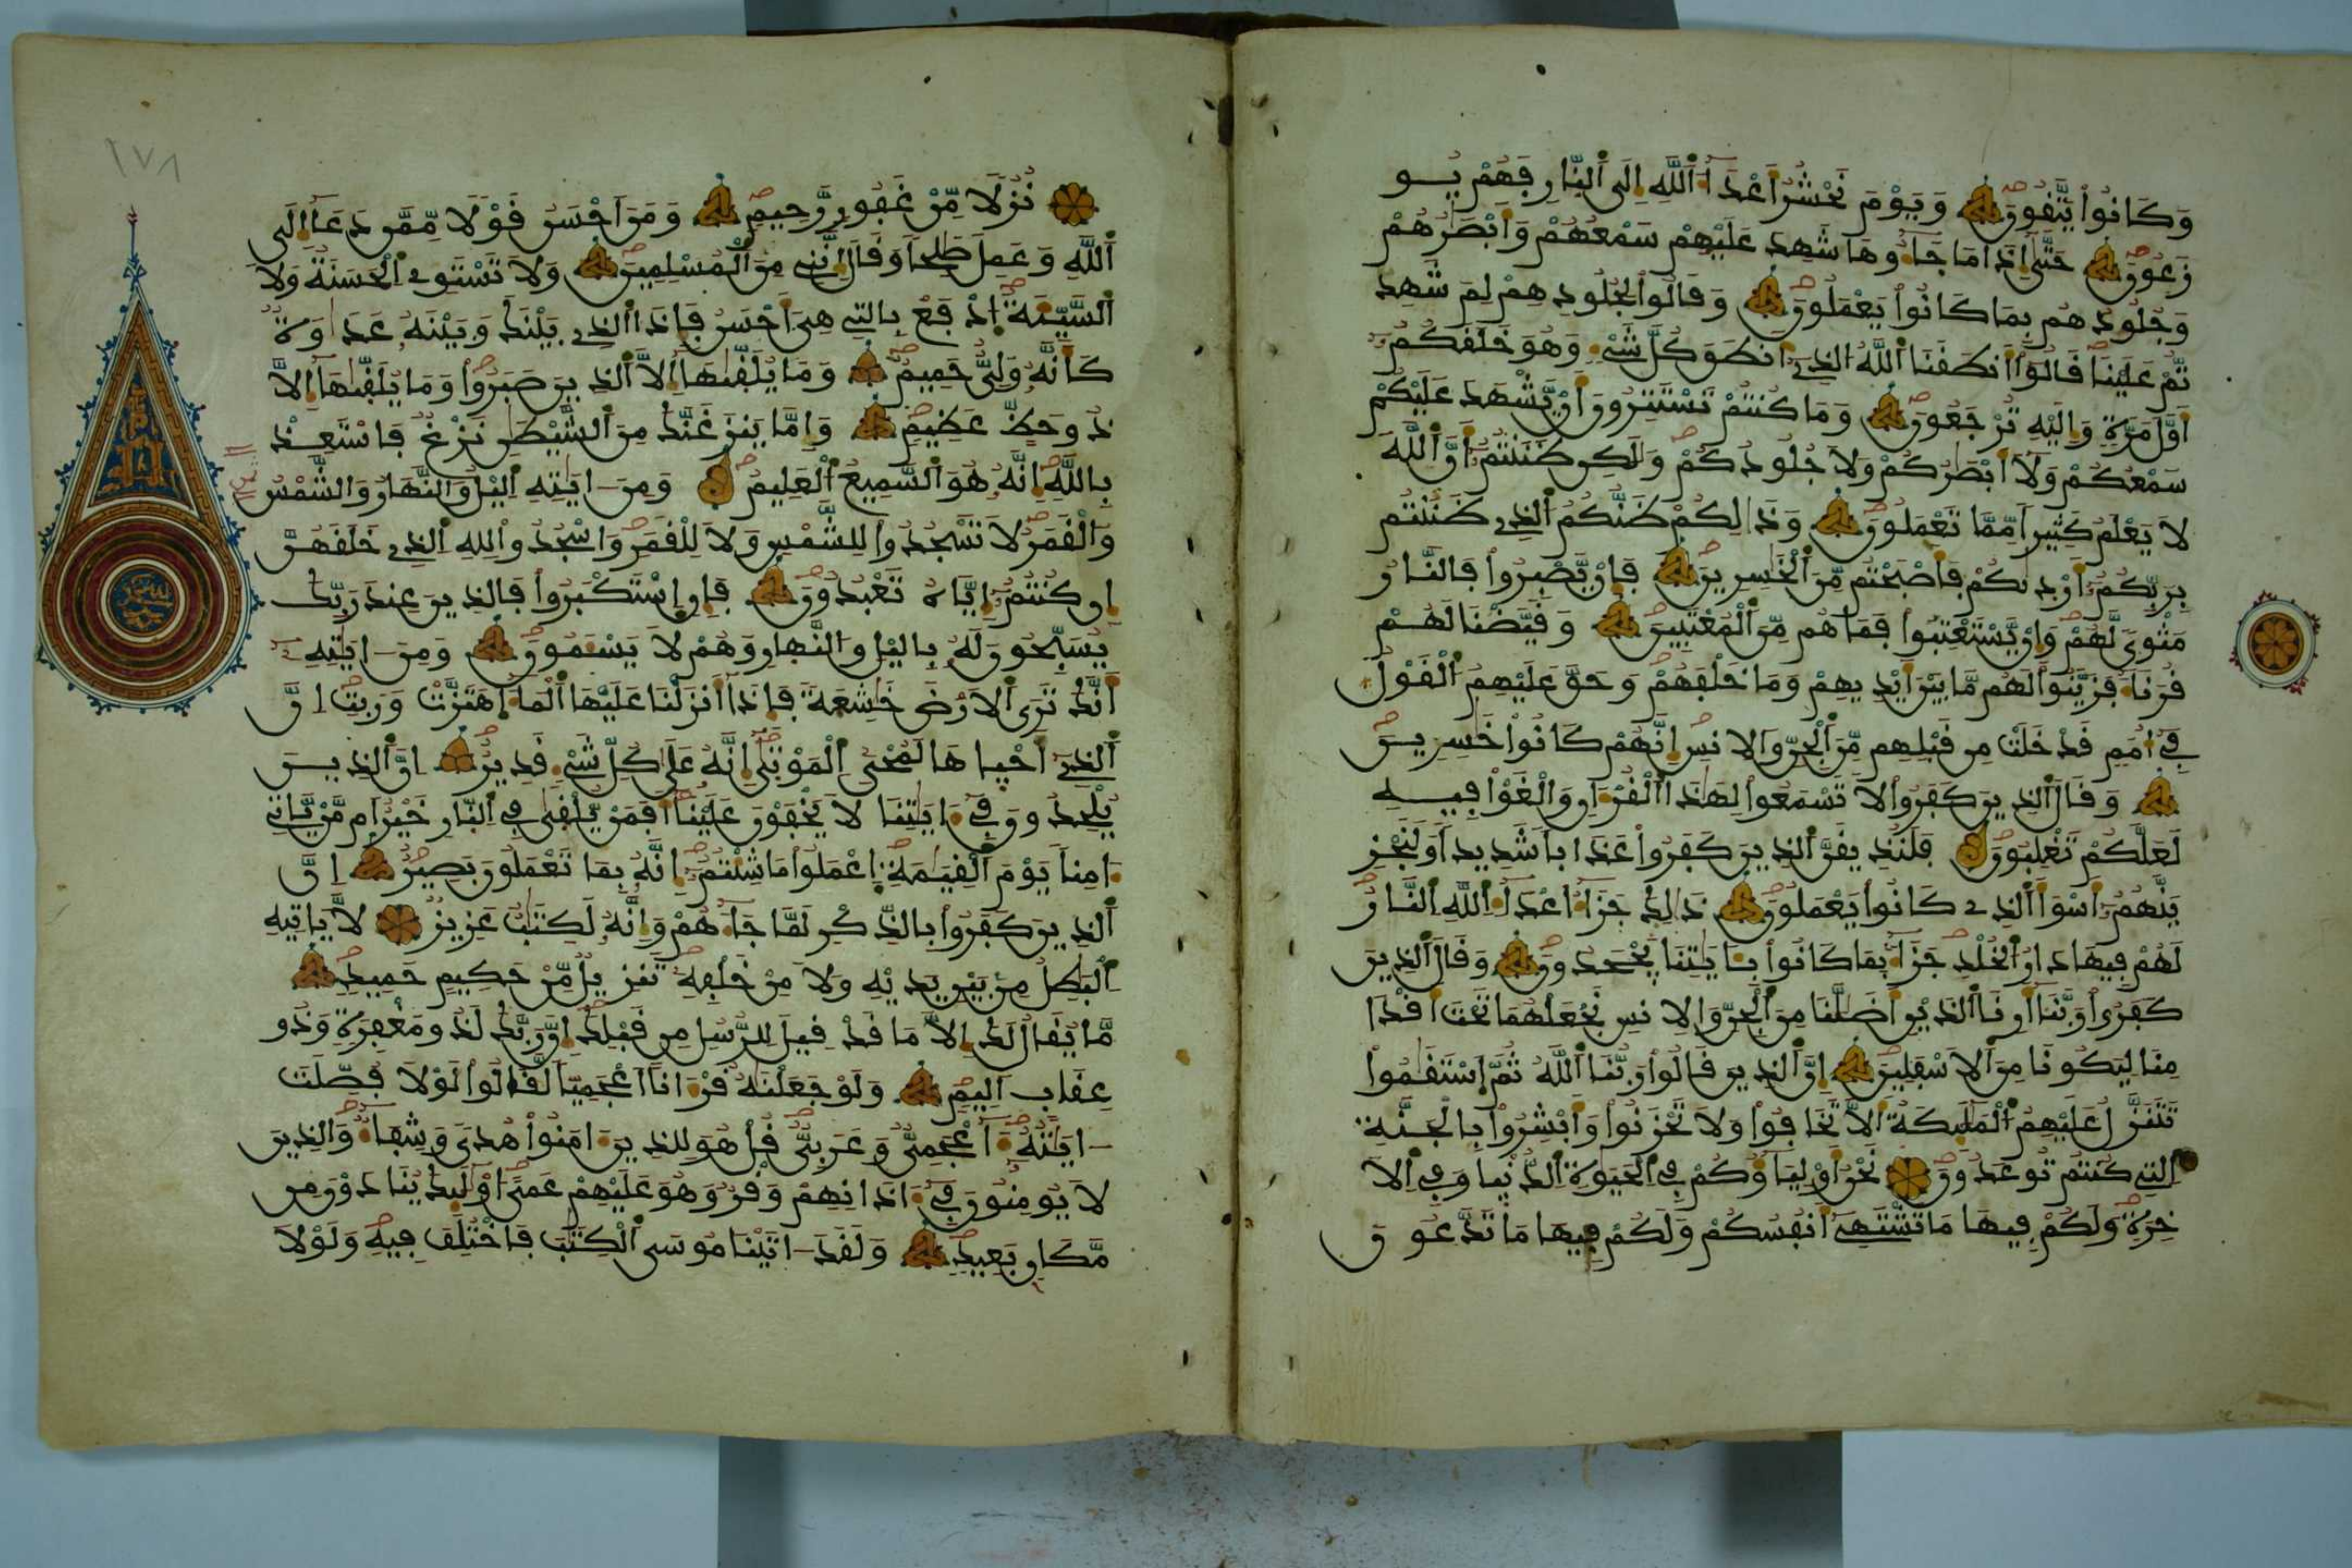 وَكَانُواْ يَتَّقُونَ وَيَوْمَ نَحْشُرُ أَعْدَآءَ اَللَّهِ إِلَى اَلنّارِ فَهُمْ يُو
زَعُونَ حَتَّىٰ إِذَا مَا جَآءُوهَا شَهِدَ عَلَيْهِمْ سَمْعُهُمْ وَأَبْصَٰرُهُمْ
وَجُلُودُهُم بِمَا كَانُواْ يَعْمَلُونَ وَقَالُواْ لِجُلُودِهِمْ لِمَ شَهِد
تُّمْ عَلَيْنَا قَالُوٓاْ أَنطَقَنَا اَللَّهُ اُلذِےٓ أَنطَقَ كُلَّ شَےْءٍ وَهُوَ خَلَقَكُمُۥٓ
أَوَّلَ مَرَّةٍ وَإِلَيْهِ تُرْجَعُونَ وَمَا كُنتُمْ تَسْتَتِرُونَ أَنْ يَّشْهَدَ عَلَيْكُمْ
سَمْعُكُمْ وَلَآ أَبْصَٰرُكُمْ وَلَا جُلُودُكُمْ وَلَٰكِن ظَنَنتُمُۥٓ أَنَّ اَللَّهَ
لَا يَعْلَمُ كَثِيراً مِّمَّا تَعْمَلُونَ وَذَٰلِكُمْ ظَنُّكُمُ اُلذِے ظَنَنتُم
بِرَبِّكُمُۥٓ أَرْدٜىٰكُمْ فَأَصْبَحْتُم مِّنَ اَلْخَٰسِرِينَ فَإِنْ يَّصْبِرُواْ فَالنَّارُ
مَثْوىً لَّهُمْ وَإِنْ يَّسْتَعْتِبُواْ فَمَا هُم مِّنَ اَلْمُعْتَبِينَ وَقَيَّضْنَا لَهُمْ
قُرَنَآءَ فَزَيَّنُواْ لَهُم مَّا بَيْنَ أَيْدِيهِمْ وَمَا خَلْفَهُمْ وَحَقَّ عَلَيْهِمُ اُلْقَوْلُ
فِےٓ أُمَمٍ قَدْ خَلَتْ مِن قَبْلِهِم مِّنَ اَلْجِنِّ وَالْإِنسِ إِنَّهُمْ كَانُواْ خَٰسِرِينَ
وَقَالَ اَلذِينَ كَفَرُواْ لَا تَسْمَعُواْ لِهَٰذَا اَلْقُرْءَانِ وَالْغَوْاْ فِيهِ
لَعَلَّكُمْ تَغْلِبُونَ فَلَنُذِيقَنَّ اَلذِينَ كَفَرُواْ عَذَاباً شَدِيداً وَلَنَجْزِ
يَنَّهُمُۥٓ أَسْوَأَ اَلذِے كَانُواْ يَعْمَلُونَ ذَٰلِكَ جَزَآءُ أَعْدَآءِ اِللَّهِ اِلنَّارُ
لَهُمْ فِيهَا دَارُ اُلْخُلْدِ جَزَآءَۢ بِمَا كَانُواْ بِـَٔايَٰتِنَا يَجْحَدُونَ وَقَالَ اَلذِينَ
كَفَرُواْ رَبَّنَآ أَرِنَا اَلذَيْنِ أَضَلَّٰنَا مِنَ اَلْجِنِّ وَالْإِنسِ نَجْعَلْهُمَا تَحْتَ أَقْدَا
مِنَا لِيَكُونَا مِنَ اَلْأَسْفَلِينَ إِنَّ اَلذِينَ قَالُواْ رَبُّنَا اَللَّهُ ثُمَّ اَسْتَقَٰمُواْ
تَتَنَزَّلُ عَلَيْهِمُ اُلْمَلَٰٓئِكَةُ أَلَّا تَخَافُواْ وَلَا تَحْزَنُواْ وَأَبْشِرُواْ بِالْجَنَّةِ
اِلتِے كُنتُمْ تُوعَدُونَ نَحْنُ أَوْلِيَآؤُكُمْ فِے اِلْحَيَوٰةِ اِلدُّنْيَا وَفِے اِلْأٓ
خِرَةِ وَلَكُمْ فِيهَا مَا تَشْتَهِےٓ أَنفُسُكُمْ وَلَكُمْ فِيهَا مَا تَدَّعُونَ
١٧٨
نُزُلاً مِّنْ غَفُورٍ رَّحِيمٍ وَمَنْ أَحْسَنُ قَوْلاً مِّمَّن دَعَآ إِلَى
اَللَّهِ وَعَمِلَ صَٰلِحاً وَقَالَ إِنَّنِے مِنَ اَلْمُسْلِمِينَ وَلَا تَسْتَوِے اِلْحَسَنَةُ وَلَا
اَلسَّيِّئَةُ اُ۪دْفَعْ بِالتِے هِيَ أَحْسَنُ فَإِذَا اَلذِے بَيْنَكَ وَبَيْنَهُۥ عَدَٰوَةٌ
كَأَنَّهُۥ وَلِيٌّ حَمِيمٌ وَمَا يُلَقَّىٰهَآ إِلَّا اَلذِينَ صَبَرُواْ وَمَا يُلَقَّىٰهَآ إِلَّا
ذُو حَظٍّ عَظِيمٍ وَإِمَّا يَنزَغَنَّكَ مِنَ اَلشَّيْطَٰنِ نَزْغٌ فَاسْتَعِذْ
بِاللَّهِ إِنَّهُۥ هُوَ اَلسَّمِيعُ اُلْعَلِيمُ وَمِنْ ءَايَٰتِهِ اِليْلُ وَالنَّهَارُ وَالشَّمْسُ
وَالْقَمَرُ لَا تَسْجُدُواْ لِلشَّمْسِ وَلَا لِلْقَمَرِ وَاسْجُدُواْ لِلهِ اِلذِے خَلَقَهُنَّ
إِن كُنتُمُۥٓ إِيَّاهُ تَعْبُدُونَ فَإِنِ اِسْتَكْبَرُواْ فَالذِينَ عِندَ رَبِّكَ
يُسَبِّحُونَ لَهُۥ بِاليْلِ وَالنَّهَارِ وَهُمْ لَا يَسْـَٔمُونَ وَمِنْ ءَايَٰتِهِۦٓ
أَنَّكَ تَرَى اَلْأَرْضَ خَٰشِعَةً فَإِذَآ أَنزَلْنَا عَلَيْهَا اَلْمَآءَ اَهْتَزَّتْ وَرَبَتِ إِنَّ
اَلذِےٓ أَحْيَاهَا لَمُحْيِ اِلْمَوْتَىٰٓ إِنَّهُۥ عَلَىٰ كُلِّ شَےْءٍ قَدِيرٌ إِنَّ اَلذِينَ
يُلْحِدُونَ فِےٓ ءَايَٰتِنَا لَا يَخْفَوْنَ عَلَيْنَآ أَفَمَنْ يُّلْقَىٰ فِے اِلنَّارِ خَيْرٌ أَم مَّنْ يَّأْتِےٓ
ءَامِناً يَوْمَ اَلْقِيَٰمَةِ اِ۪عْمَلُواْ مَا شِئْتُمُۥٓ إِنَّهُۥ بِمَا تَعْمَلُونَ بَصِيرٌ إِنَّ
اَلذِينَ كَفَرُواْ بِالذِّكْرِ لَمَّا جَآءَهُمْ وَإِنَّهُۥ لَكِتَٰبٌ عَزِيزٌ لَّا يَأْتِيهِ
اِلْبَٰطِلُ مِنۢ بَيْنِ يَدَيْهِ وَلَا مِنْ خَلْفِهِۦ تَنزِيلٌ مِّنْ حَكِيمٍ حَمِيدٍ
مَّا يُقَالُ لَكَ إِلَّا مَا قَدْ قِيلَ لِلرُّسُلِ مِن قَبْلِكَ إِنَّ رَبَّكَ لَذُو مَغْفِرَةٍ وَذُو
عِقَابٍ أَلِيمٍ وَلَوْ جَعَلْنَٰهُ قُرْءَاناً أَعْجَمِيّاً لَّقَالُواْ لَوْلَا فُصِّلَتَ
ءَايَٰتُهُۥٓ ءَا۬عْجَمِيٌّ وَعَرَبِيٌّ قُلْ هُوَ لِلذِينَ ءَامَنُواْ هُدىً وَشِفَآءٌ وَالذِينَ
لَا يُؤْمِنُونَ فِےٓ ءَاذَانِهِمْ وَقْرٌ وَهُوَ عَلَيْهِمْ عَمىً أُوْلَٰٓئِكَ يُنَادَوْنَ مِن
مَّكَانِۢ بَعِيدٍ وَلَقَدْ ءَاتَيْنَا مُوسَى اَلْكِتَٰبَ فَاخْتُلِفَ فِيهِ وَلَوْلَا